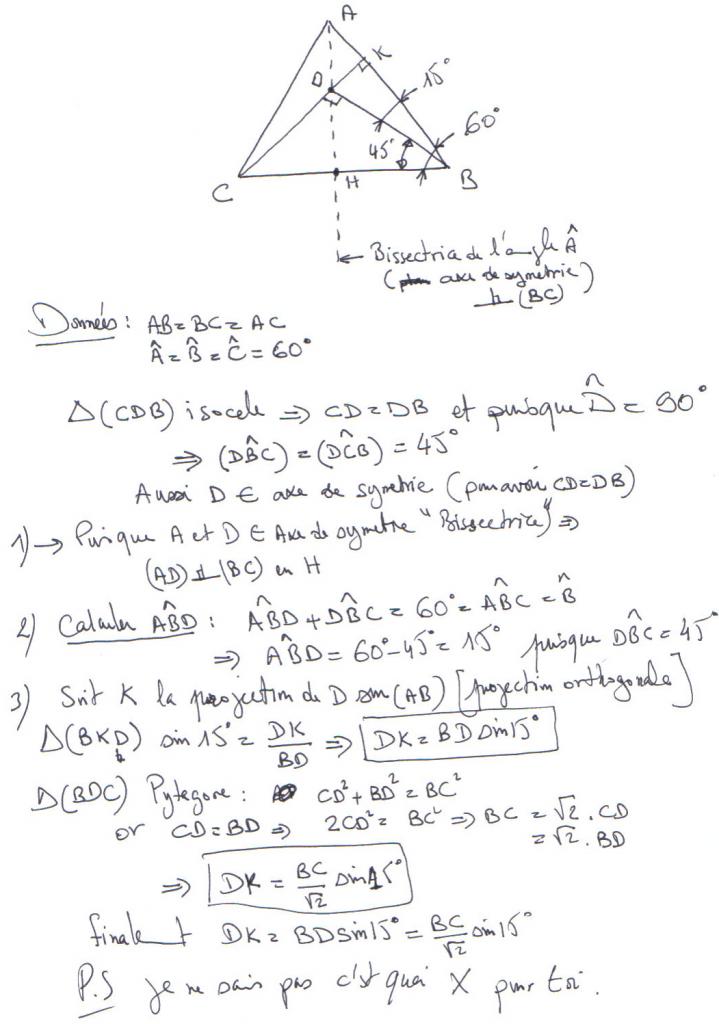 A
K
D
15°
60°
45°
C
H
B
← Bissectrice de l'angle Â
( axe de symetrie)
⊥ (BC)
Données : AB = BC = AC
Â = B̂ = Ĉ = 60°
Δ(CDB) isocele ⇒ CD = DB et puisque D̂ = 90°
⇒ (DB̂C) = (DĈB) = 45°
Aussi D ∈ axe de symetrie (pour avoir CD = DB)
1) → Puisque A et D ∈ Axe de symetrie "Bissectrice" ⇒
(AD) ⊥ (BC) en H
2) Calculer AB̂D : AB̂D + DB̂C = 60° = AB̂C = B̂
⇒ AB̂D = 60° - 45° = 15° puisque DB̂C = 45°
3) Soit K la projection de D sur (AB) [projection orthogonale]
Δ(BKD) sin 15° = DK/BD ⇒ DK = BD sin 15°
Δ(BDC) Pytegore : CD² + BD² = BC²
or CD = BD ⇒ 2CD² = BC² ⇒ BC = √2 . CD
= √2 . BD
⇒ DK = BC/√2 sin 15°
finalent DK = BD sin 15° = BC/√2 sin 15°
P.S je ne sais pas c'est quoi X pour toi.